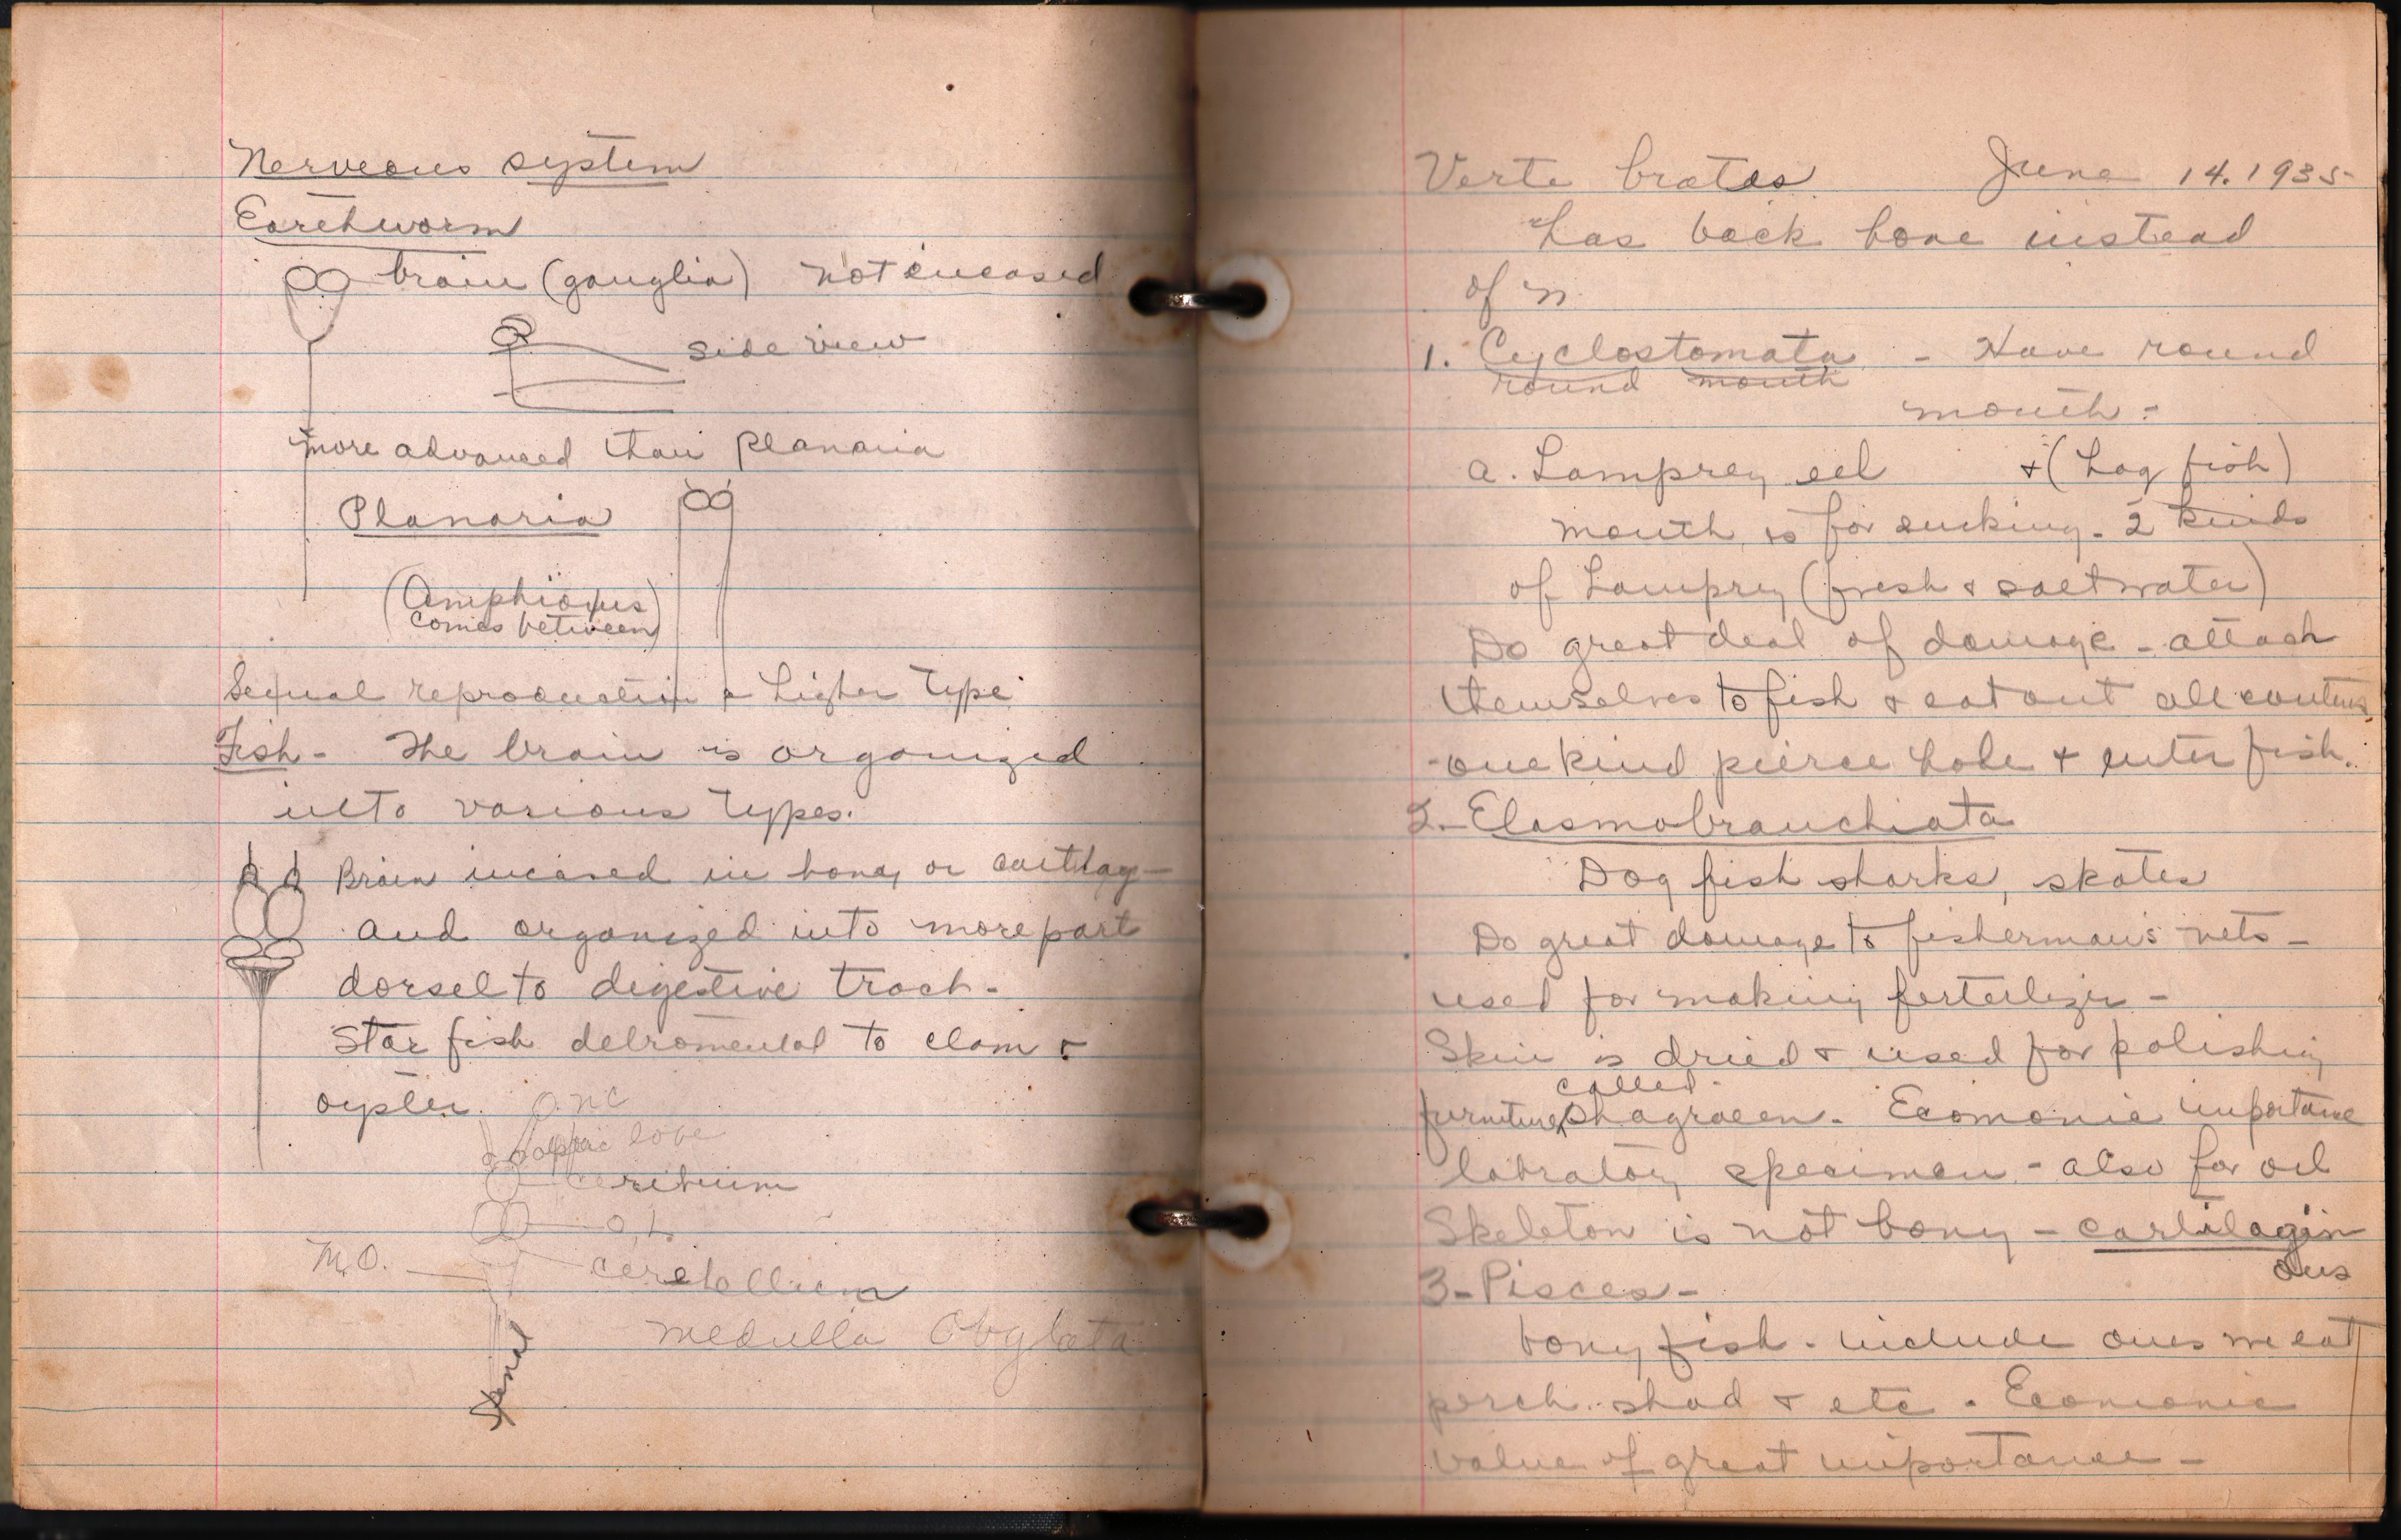 Nerveous system
Earthworm
brain (ganglia) not incased
side view
more advanced than planaria
Planaria
(Amphioxus
comes between)
Sexual reproduction a higher type
Fish - The brain is organized
into various types.
Brain incased in boney or cartilag-
and organized into more part
dorsel to digestive trach -
Star fish detromental to clam &
oyster.
lobe
O.L.
M.O.
cerebellium
medulla
Verte brates June 14. 1935
has back bone instead
of n
1. Cyclostomata - Have round
round mouth
mouth -
a. Lamprey eel + (hag fish)
mouth is for sucking - 2 kinds
of Lamprey (fresh & saltwater)
Do great deal of damage - attach
themselves to fish & eat out all
- one kind pierce hole + enter fish.
2 - Elasmobranchiata
Dog fish sharks, skates
Do great damage to fisherman's nets -
used for making fertelizer -
Skin is dried & used for polishing
called
furniture, Shagraeen - Ecomonic importance
labratory specimen - also for oil
Skeleton is not bony - cartilagin
ous
3 - Pisces -
bony fish - include ones we eat
perch.. shad & etc. Ecomonic
value of great importance -